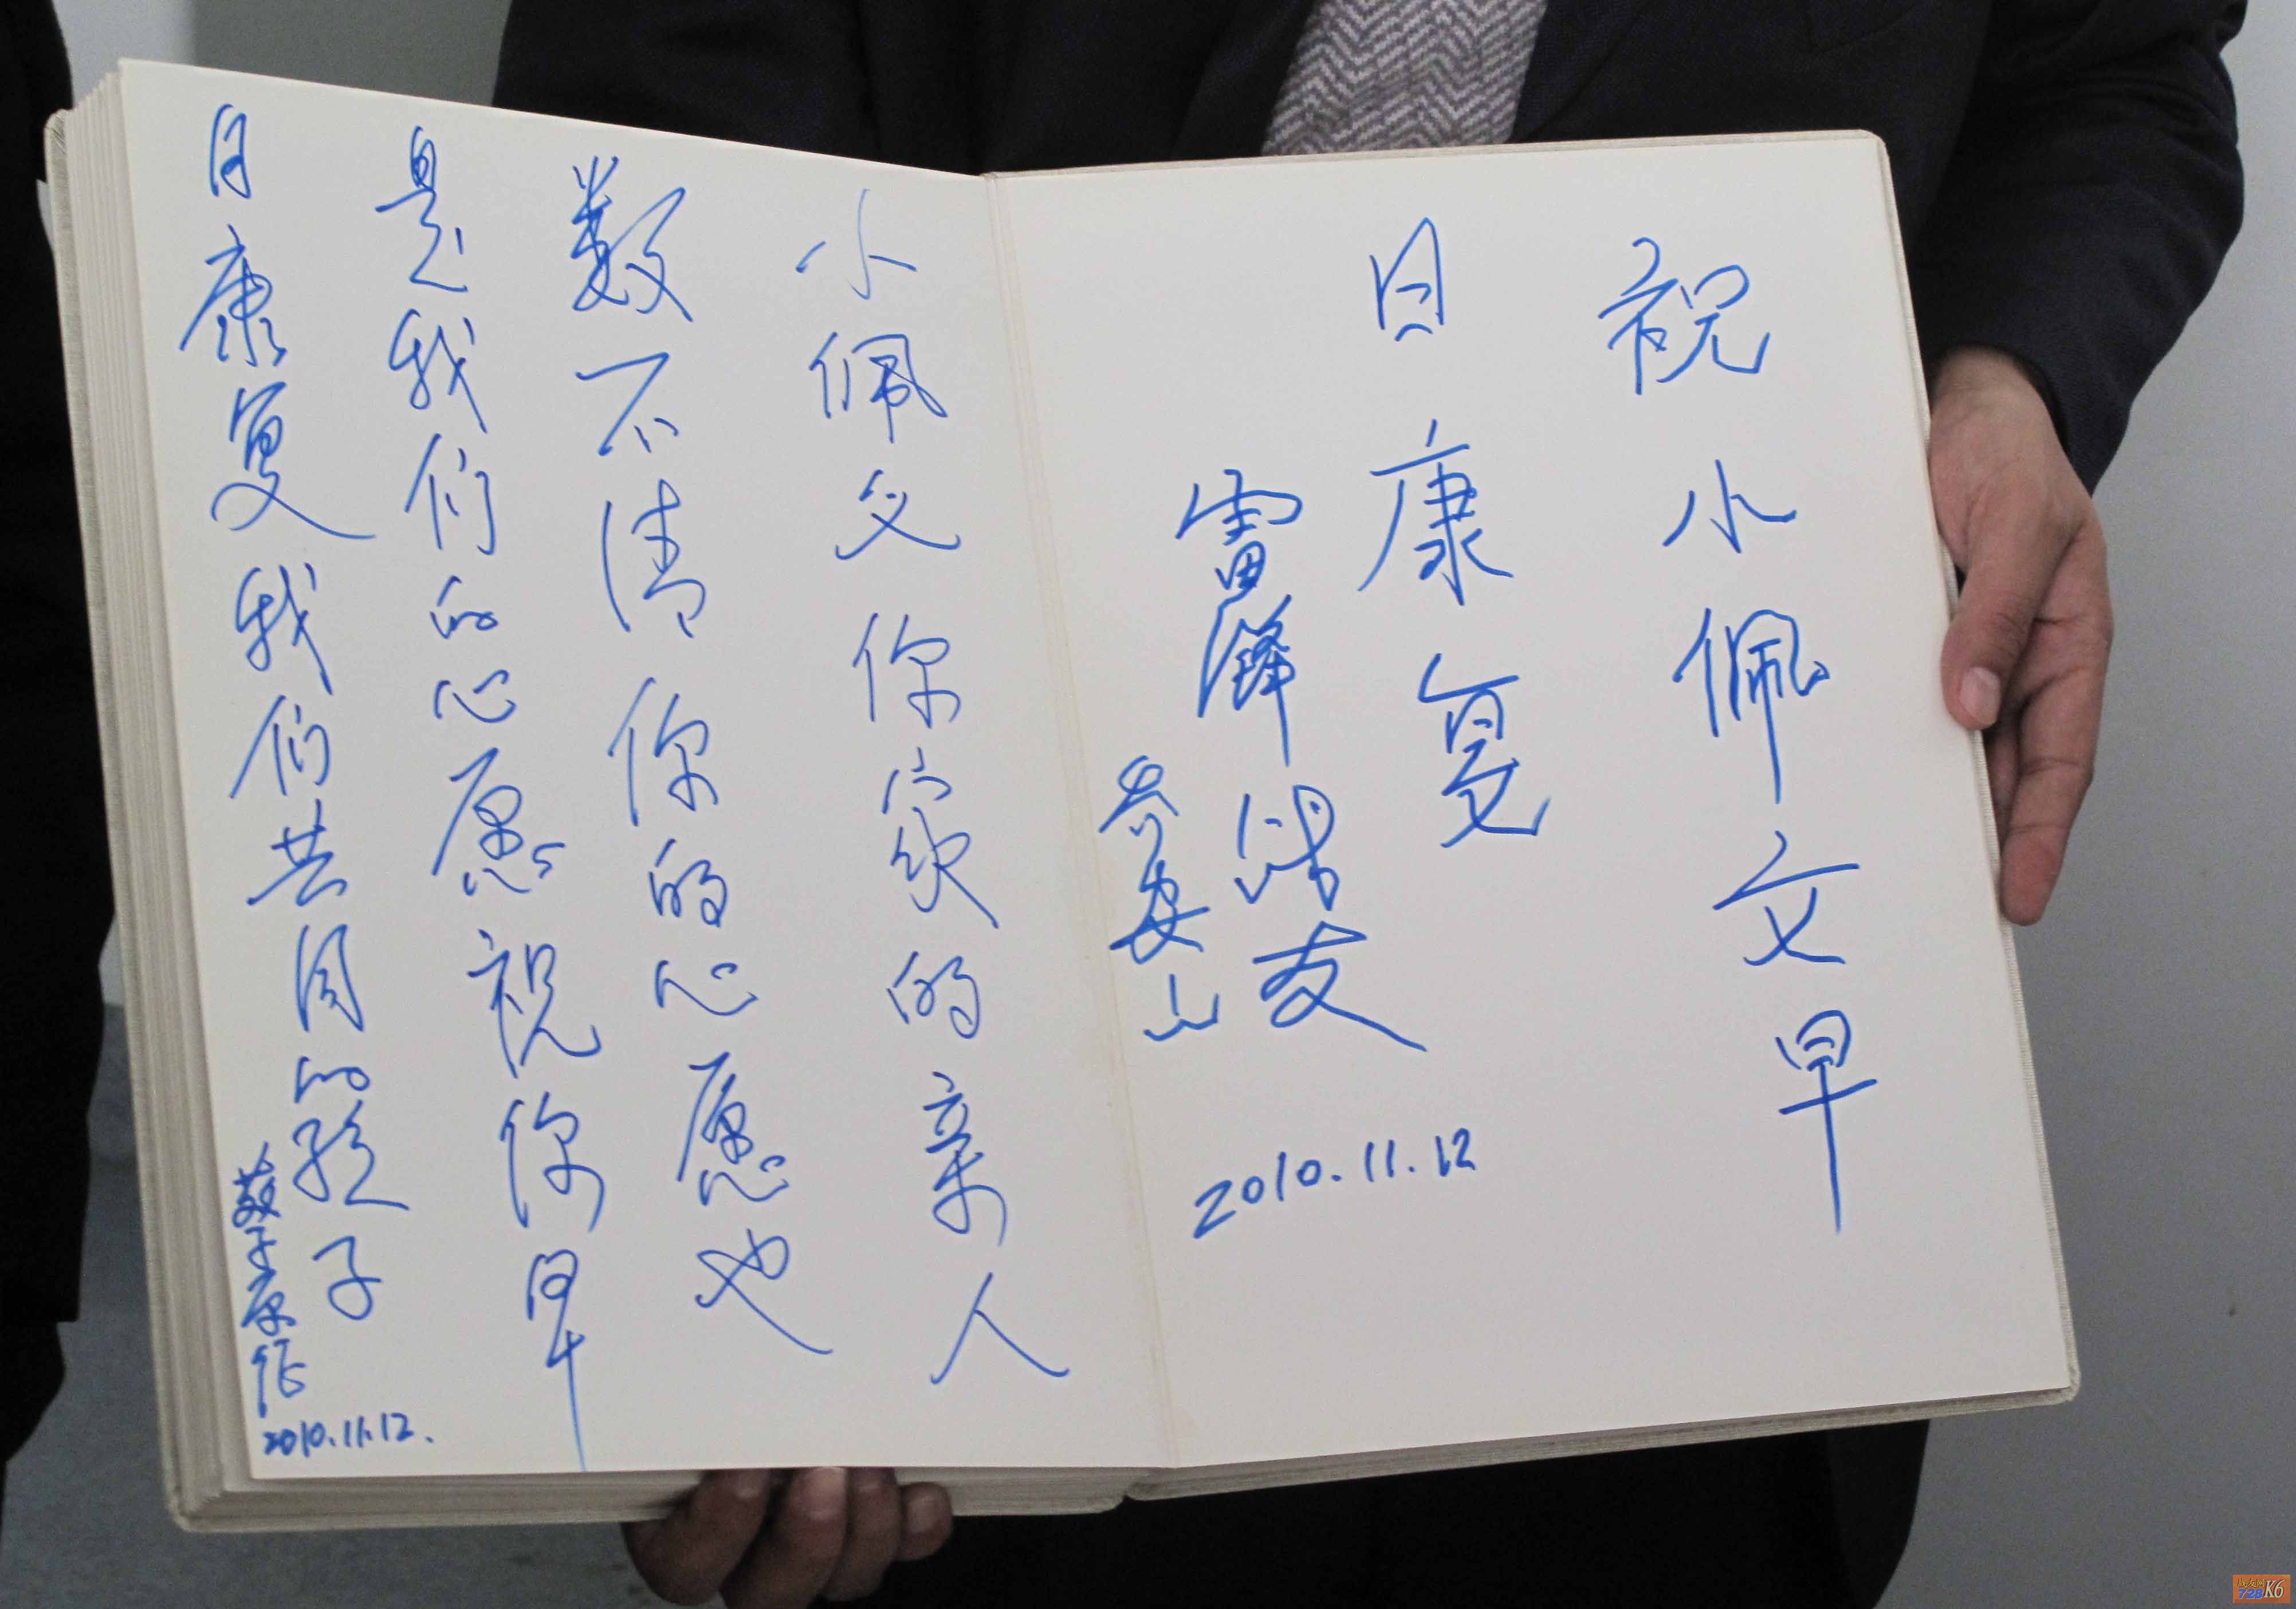 祝小佩文早
日康复
雷锋战友
乔安山
2010.11.12
小佩文你家的亲人
数不清你的心愿也
是我们的心愿祝你早
日康复我们共同的孩子
2010.11.12.
728K6